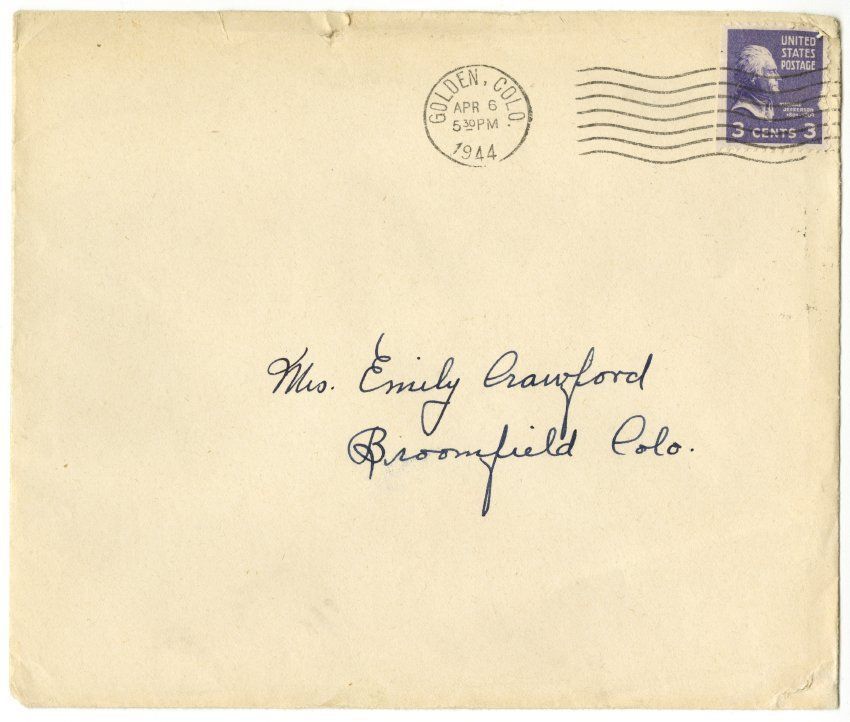 GOLDEN, COLO.
APR 6
5 30 PM
1944
UNITED
STATES
POSTAGE
JEFFERSON
3 CENTS 3
Mrs. Emily Crawford
Broomfield Colo.